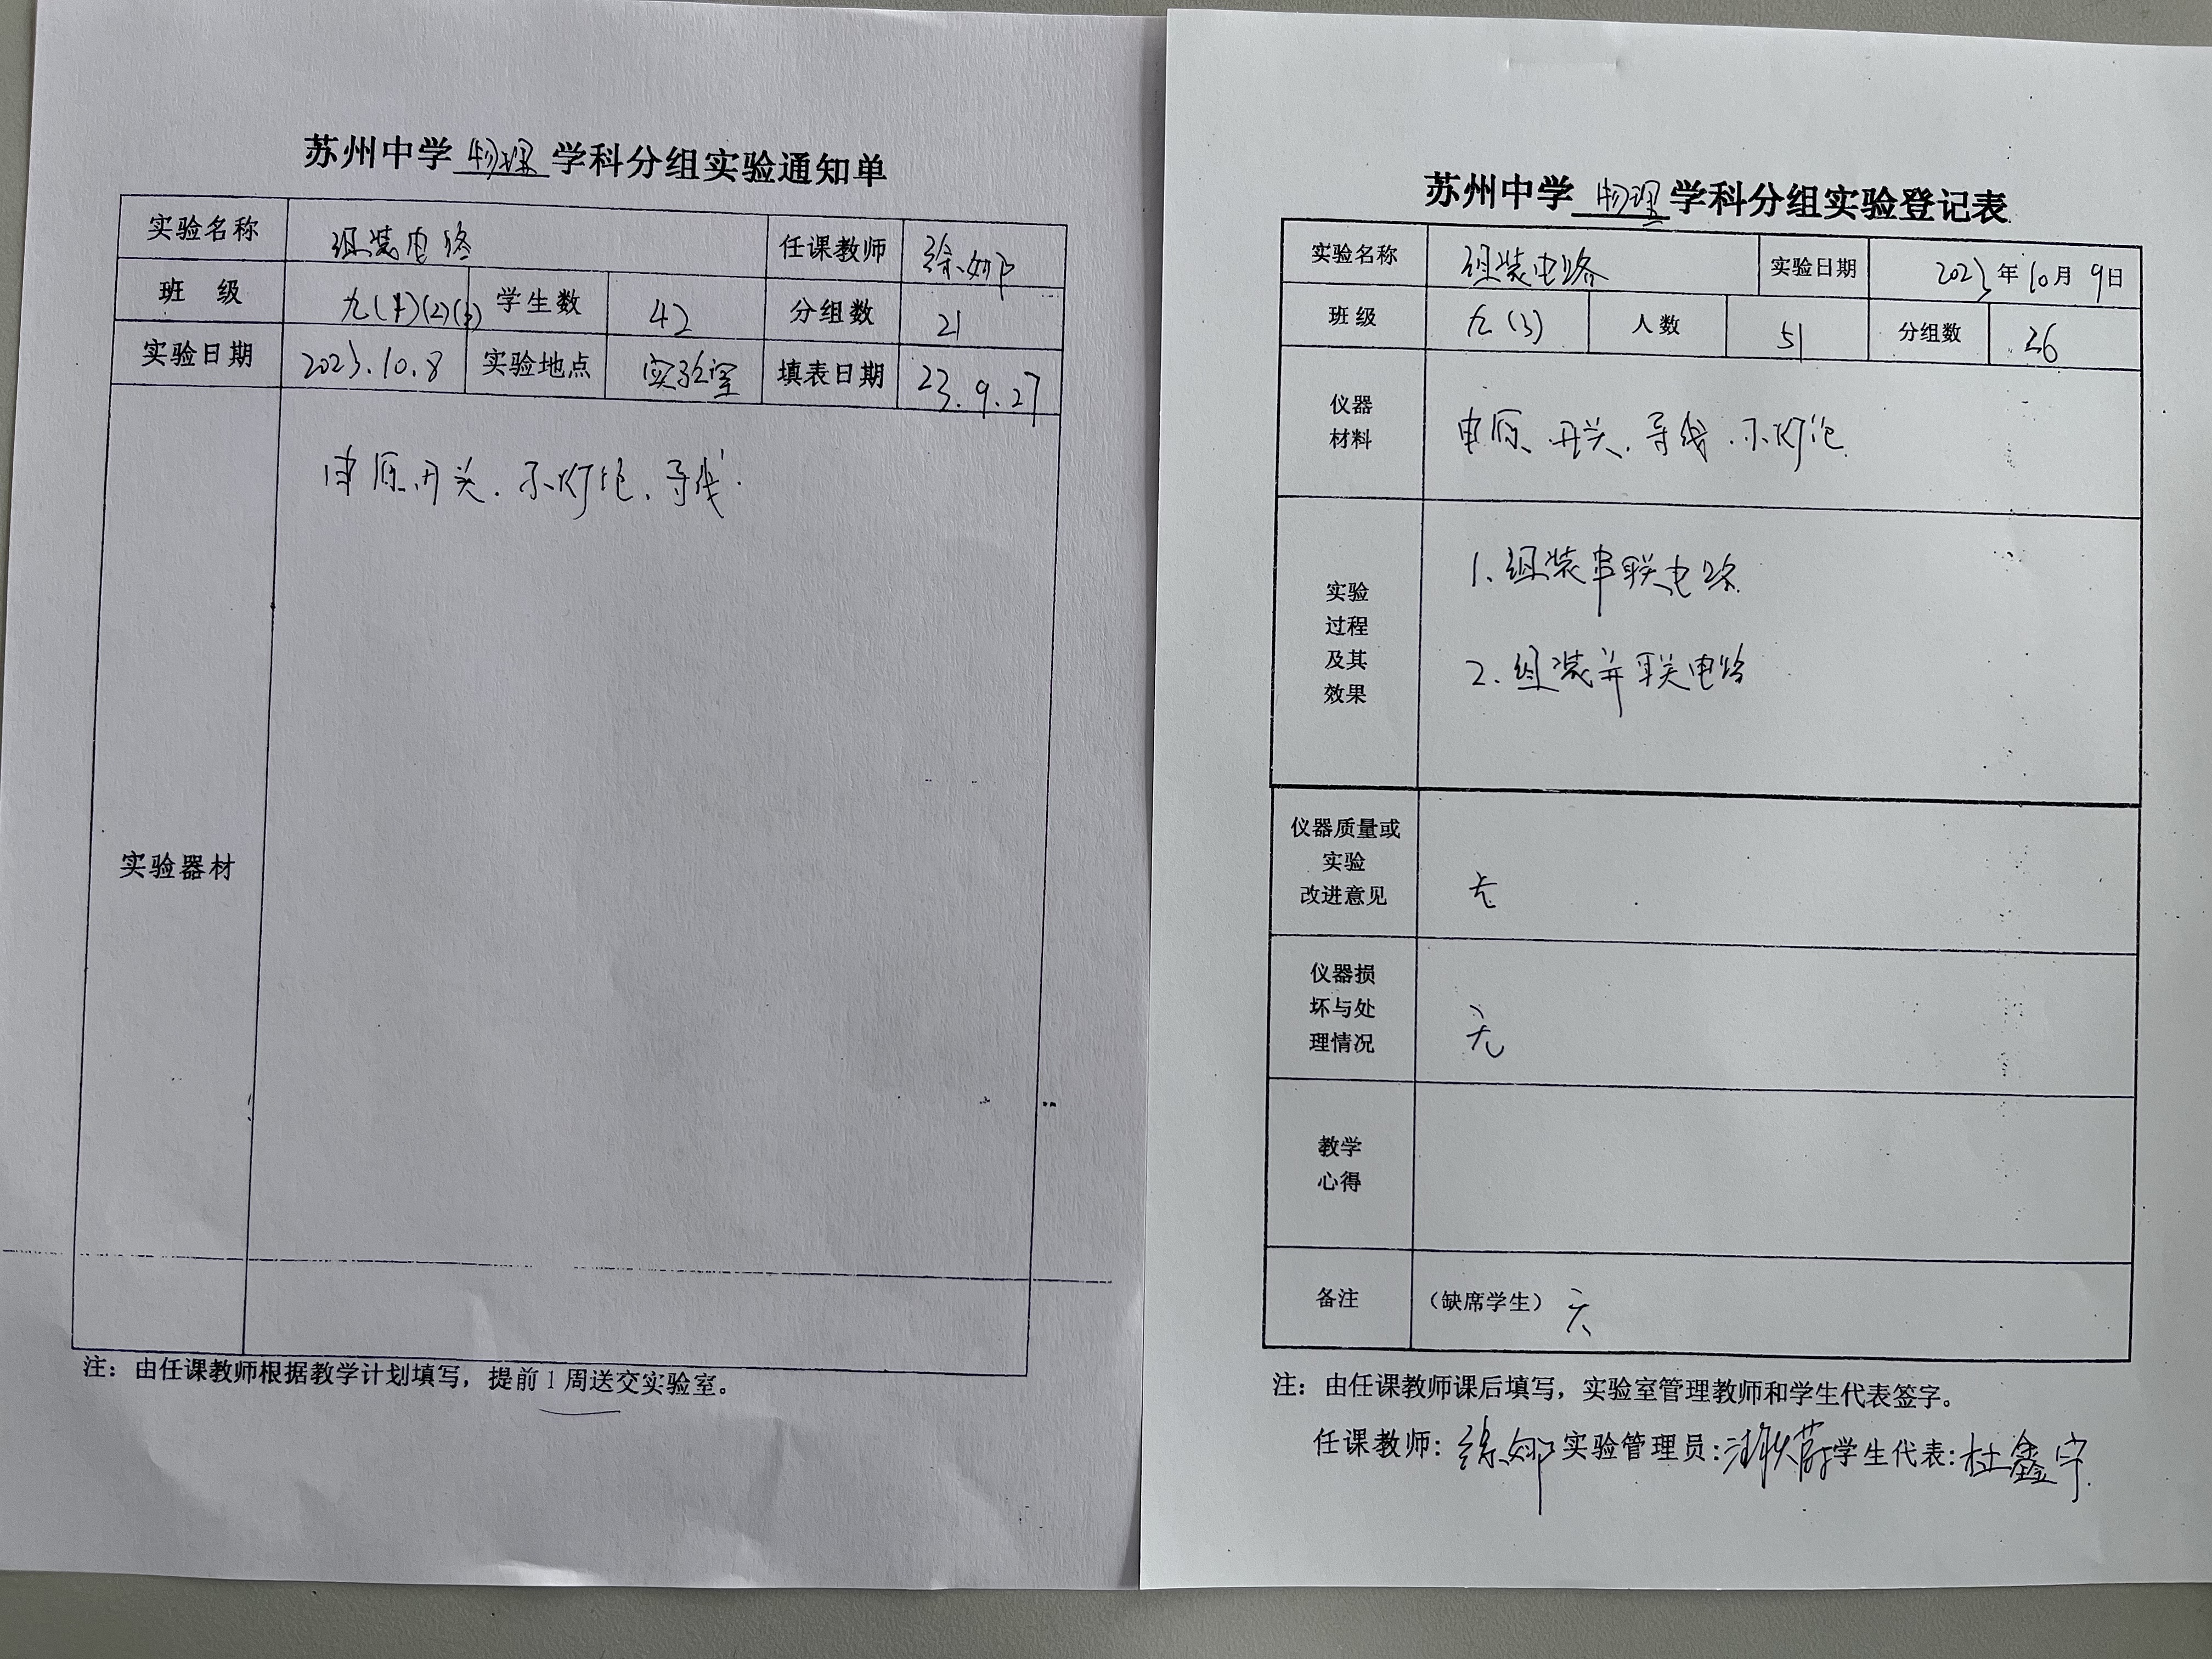 苏州中学 物理 学科分组实验通知单
实验名称 组装电路 任课教师 徐娜
班 级 九(1)(2)(3) 学生数 42 分组数 21
实验日期 2023.10.8 实验地点 实验室 填表日期 23.9.27
实验器材 电原、开关、小灯泡、导线.
注：由任课教师根据教学计划填写，提前1周送交实验室。
苏州中学 物理 学科分组实验登记表
实验名称 组装电路 实验日期 2023年10月9日
班级 九(3) 人数 51 分组数 26
仪器
材料 电原、开关、导线、小灯泡
实验
过程
及其
效果
1、组装串联电路
2、组装并联电路
仪器质量或
实验
改进意见
无
仪器损
坏与处
理情况
无
教学
心得
备注 （缺席学生） 无
注：由任课教师课后填写，实验室管理教师和学生代表签字。
任课教师：徐娜 实验管理员： 学生代表：杜鑫宇